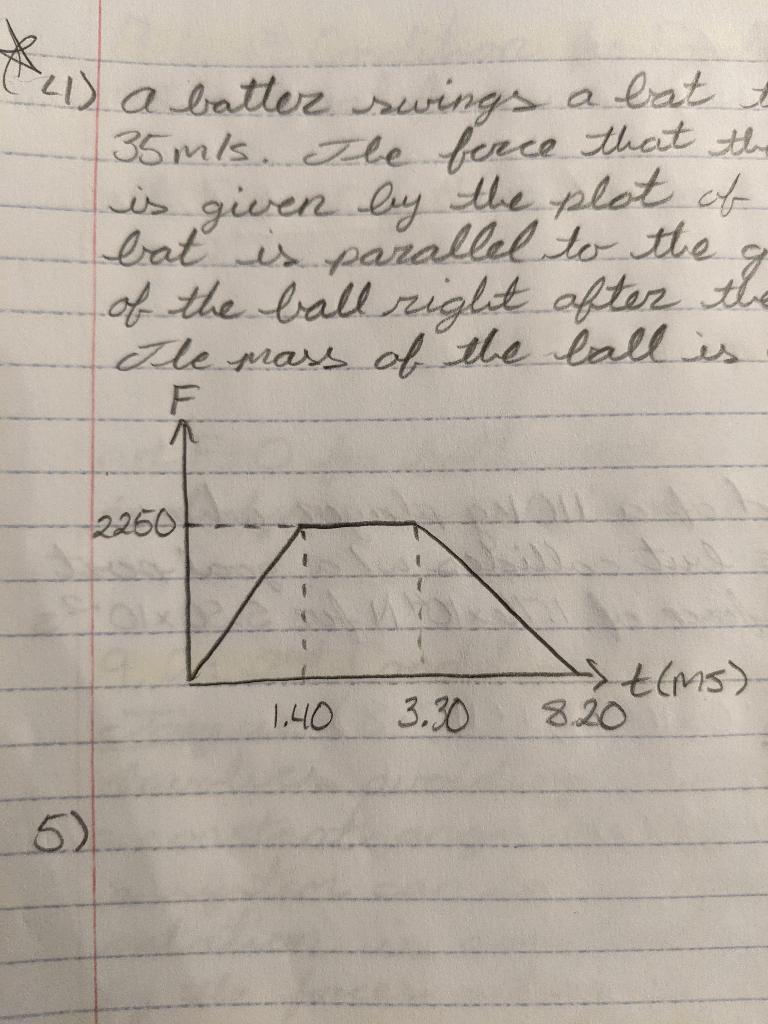 4) A batter swings a bat t
35m/s. The force that the
is given by the plot of
bat is parallel to the g
of the ball right after the
The mass of the ball is
F
2250
t(ms)
1.40 3.30 8.20
5)